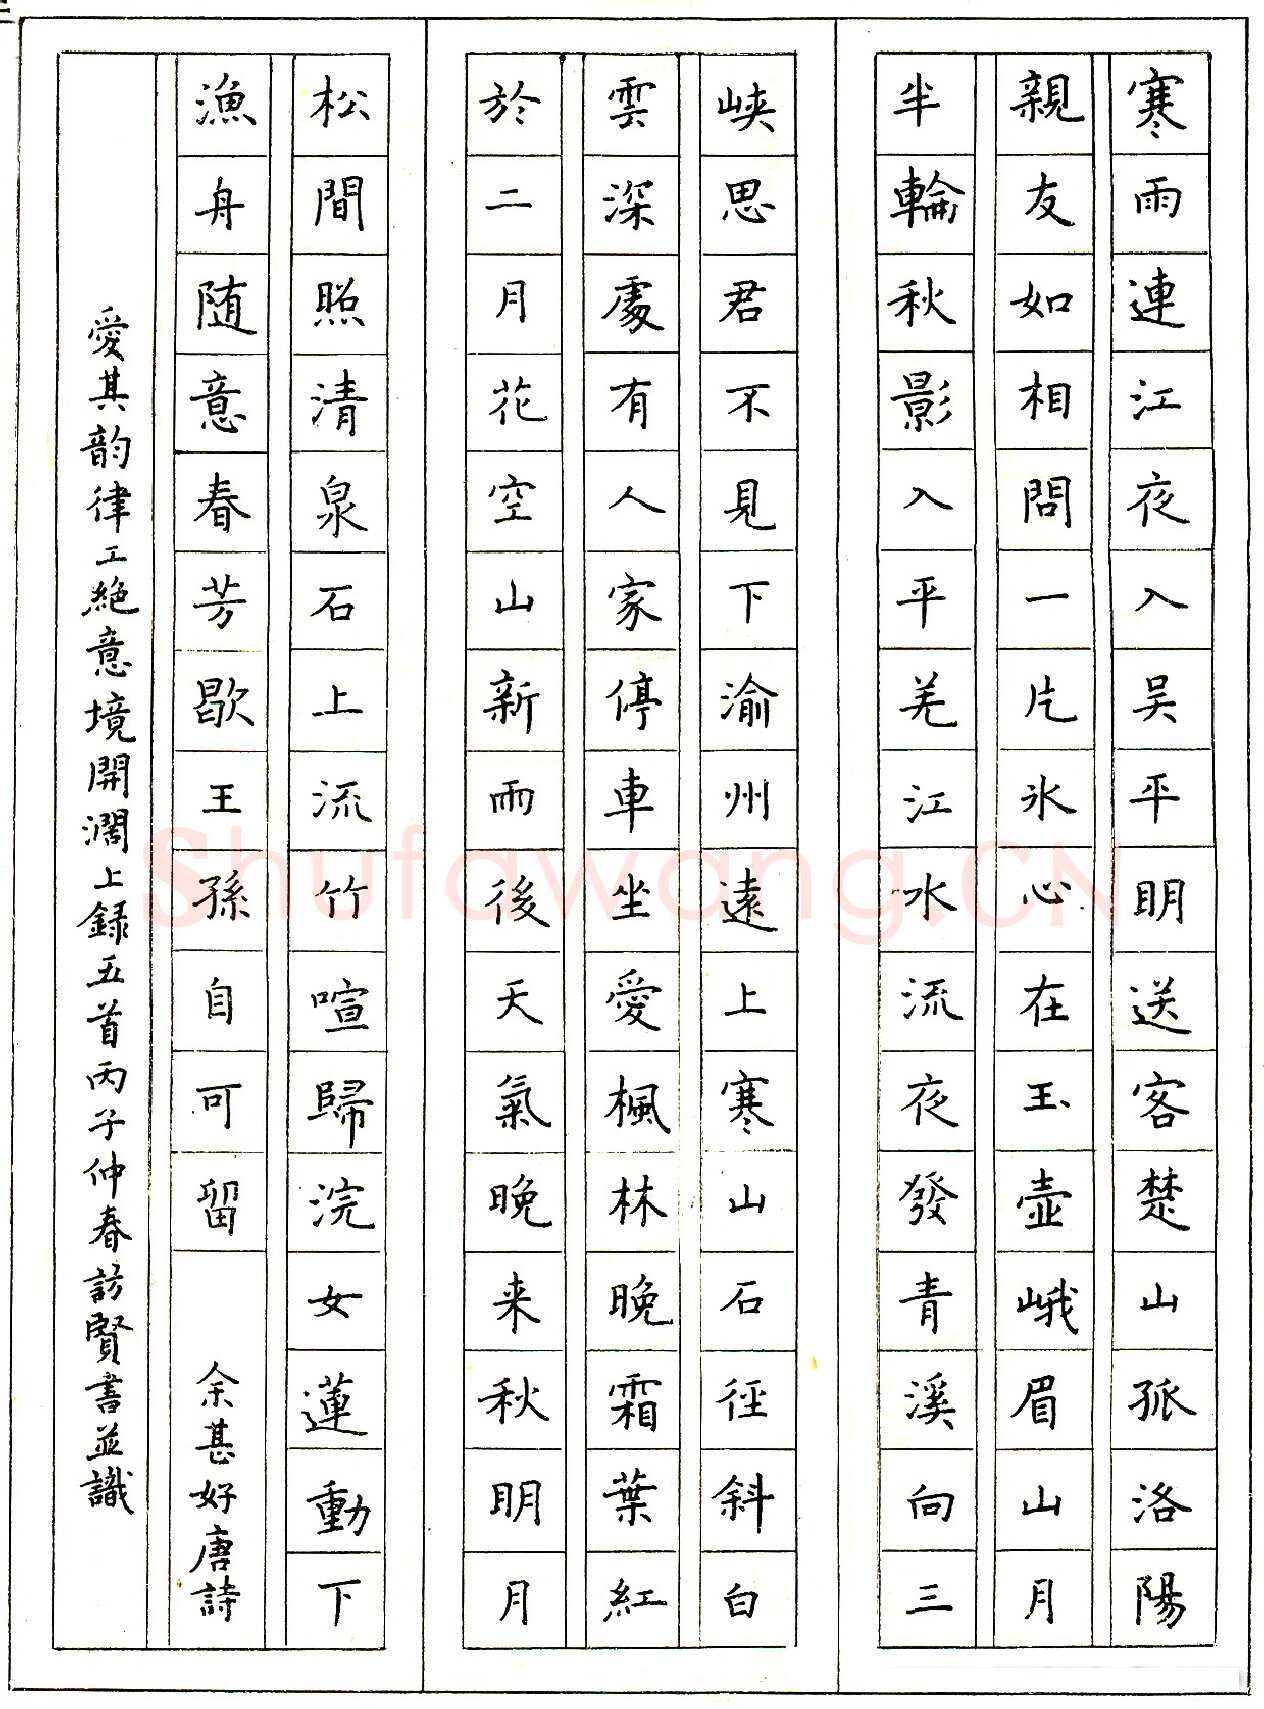 寒雨連江夜入吴平明送客楚山孤洛陽
親友如相問一片氷心在玉壺峨眉山月
半輪秋影入平羌江水流夜發青溪向三
峡思君不見下渝州遠上寒山石徑斜白
雲深處有人家停車坐愛楓林晚霜葉紅
於二月花空山新雨後天氣晚来秋明月
松間照清泉石上流竹喧歸浣女蓮動下
漁舟随意春芳歇王孫自可留
余甚好唐詩
愛其韵律工絶意境開濶上録五首丙子仲春訪賢書並識
Shufawang.CN